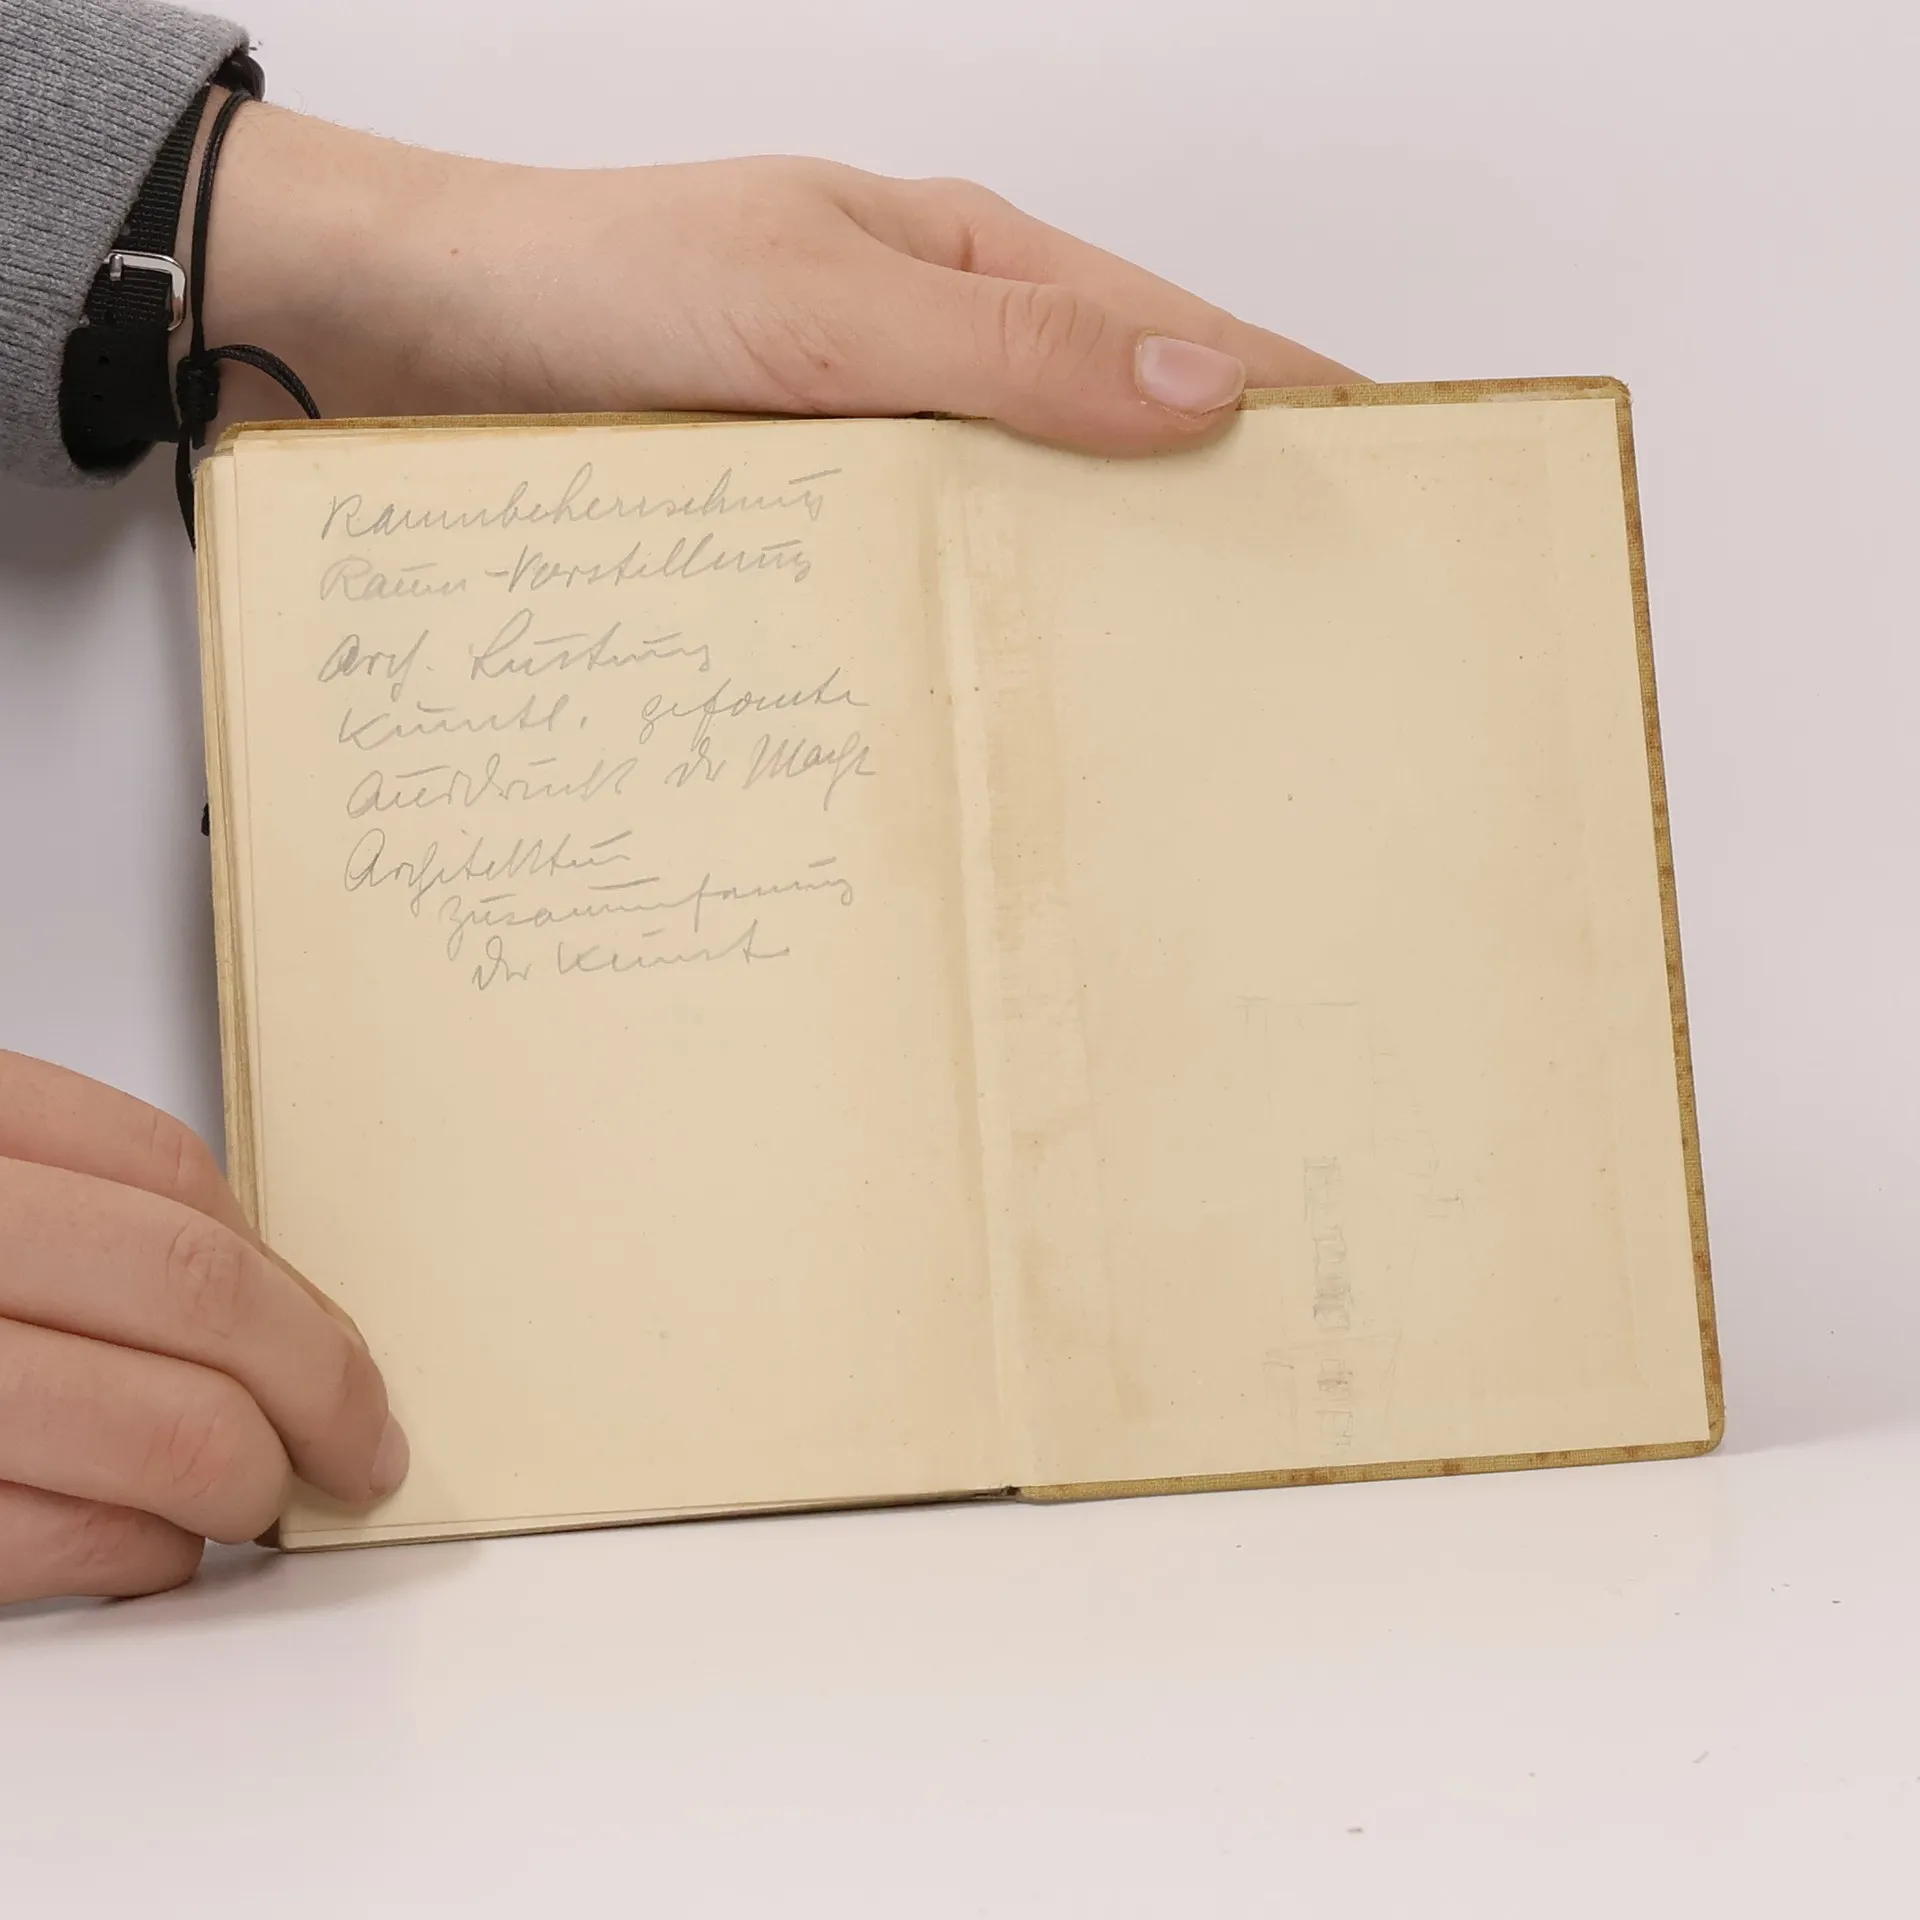 Raumbeherrschung
Raum-Vorstellung
Arch.
Künstl. geformte
Ausdruck der Macht
Architektur
Zusammenfassung
der Kunst